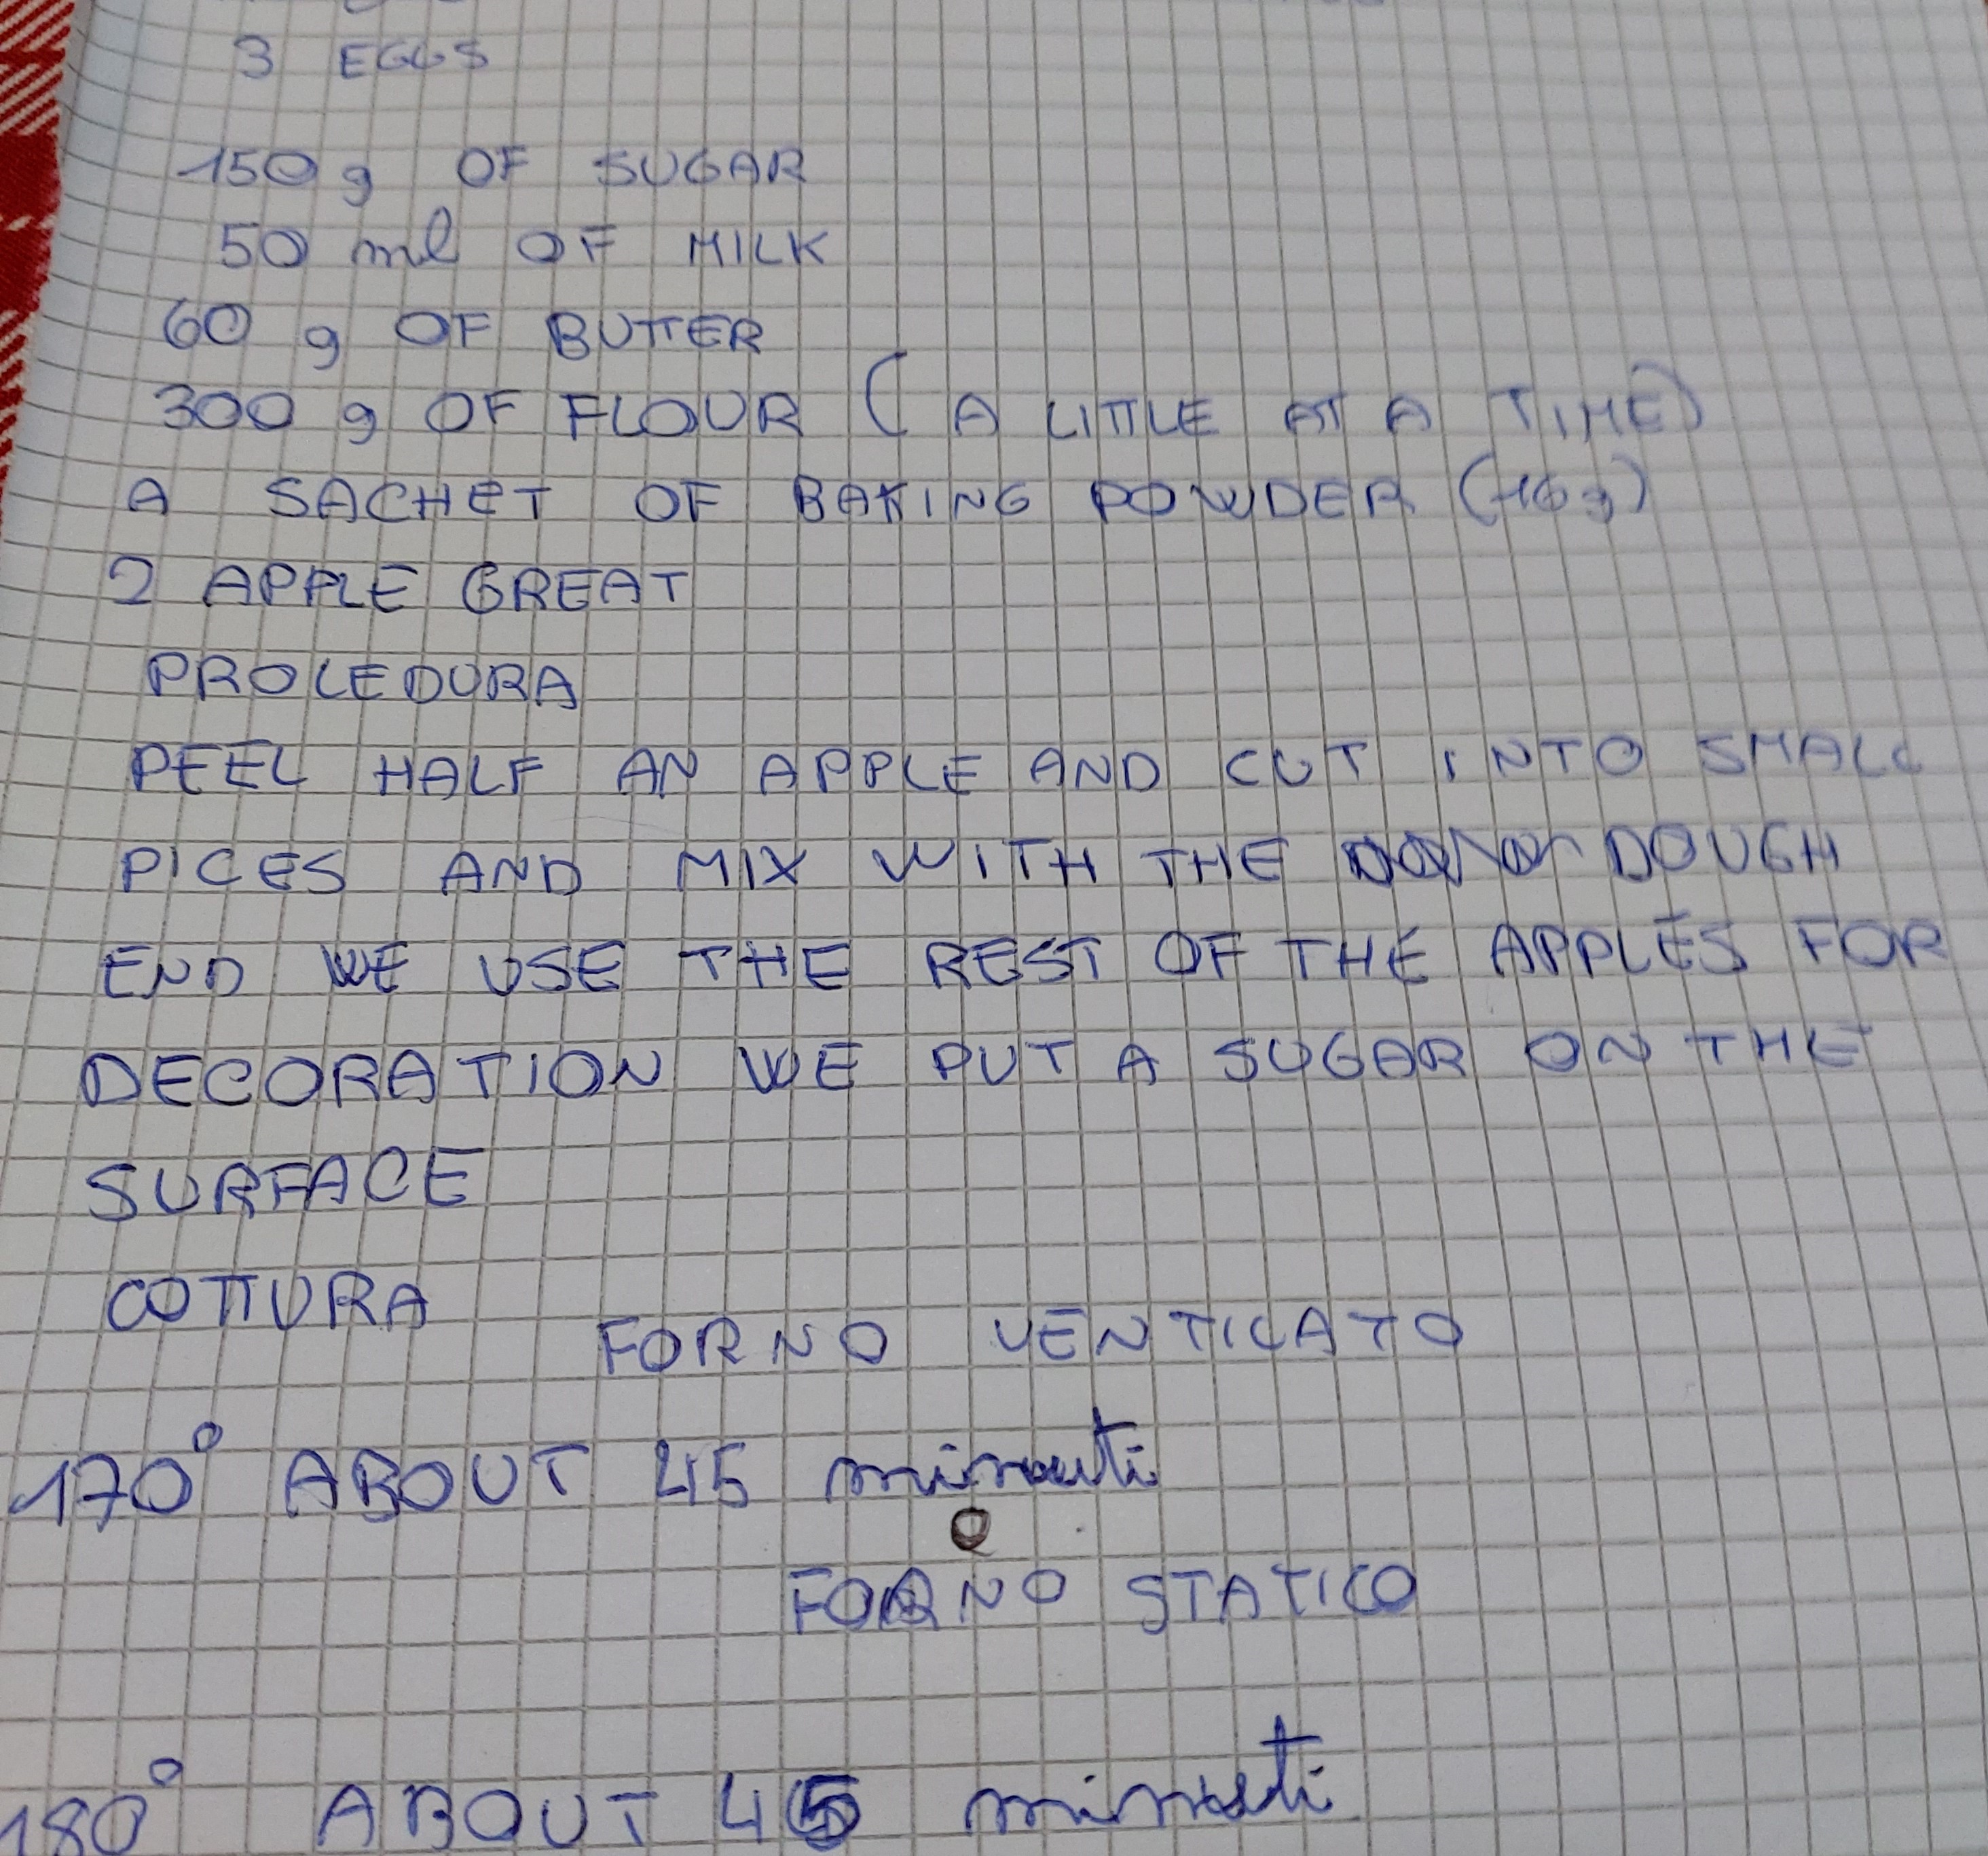 3 EGGS
150 g OF SUGAR
50 ml OF MILK
60 g OF BUTTER
300 g OF FLOUR (A LITTLE AT A TIME)
A SACHET OF BAKING POWDER (16 g)
2 APPLE GREAT
PROCEDURA
PEEL HALF AN APPLE AND CUT INTO SMALL
PICES AND MIX WITH THE DOUGH
END WE USE THE REST OF THE APPLES FOR
DECORATION WE PUT A SUGAR ON THE
SURFACE
COTTURA
FORNO VENTILATO
170° ABOUT 45 minuti
O
FORNO STATICO
180° ABOUT 45 minuti